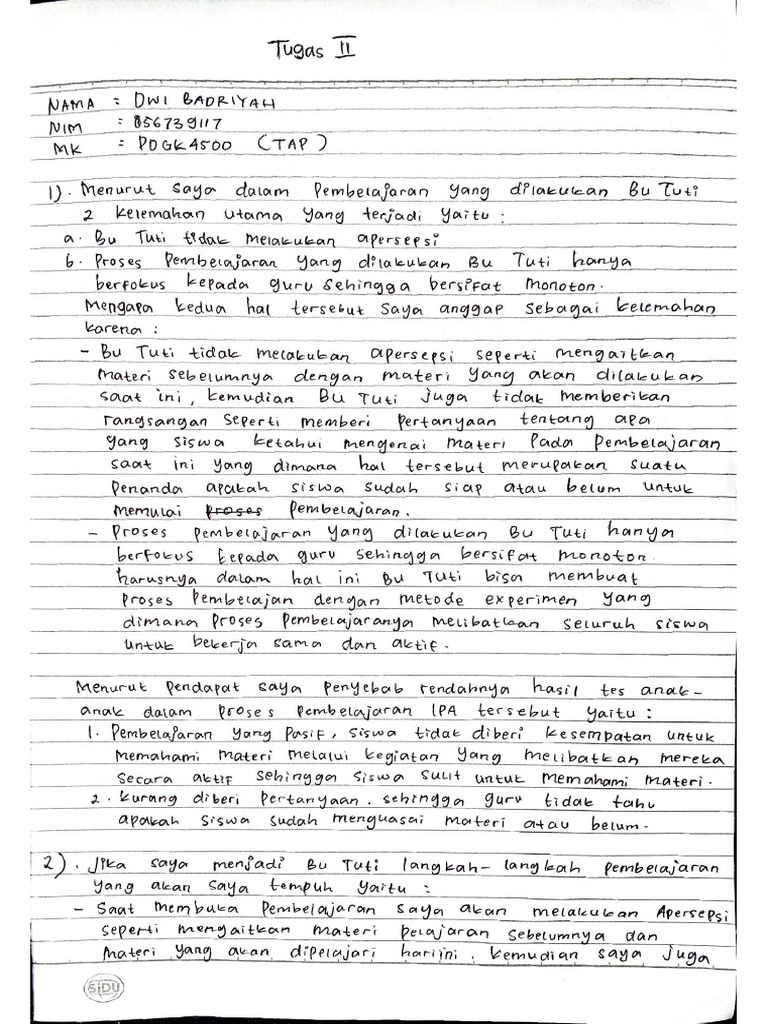 Tugas II
NAMA : DWI BADRIYAH
NIM : 856739117
MK : PDGK4500 (TAP)
1). Menurut saya dalam Pembelajaran yang dilakukan Bu Tuti
2 kelemahan utama yang terjadi yaitu :
a. Bu Tuti tidak melakukan apersepsi
b. Proses Pembelajaran yang dilakukan Bu Tuti hanya
berfokus kepada guru sehingga bersifat monoton.
Mengapa kedua hal tersebut saya anggap sebagai kelemahan
karena :
- Bu Tuti tidak melakukan apersepsi seperti mengaitkan
materi sebelumnya dengan materi yang akan dilakukan
saat ini, kemudian Bu Tuti juga tidak memberikan
rangsangan seperti memberi pertanyaan tentang apa
yang siswa ketahui mengenai materi pada pembelajaran
saat ini yang dimana hal tersebut merupakan suatu
penanda apakah siswa sudah siap atau belum untuk
memulai proses pembelajaran.
- Proses pembelajaran yang dilakukan Bu Tuti hanya
berfokus kepada guru sehingga bersifat monoton.
harusnya dalam hal ini Bu Tuti bisa membuat
proses pembelajan dengan metode experimen yang
dimana proses pembelajaranya melibatkan seluruh siswa
untuk bekerja sama dan aktif.
Menurut pendapat saya penyebab rendahnya hasil tes anak-
anak dalam proses pembelajaran IPA tersebut yaitu :
1. Pembelajaran yang pasif, siswa tidak diberi kesempatan untuk
memahami materi melalui kegiatan yang melibatkan mereka
secara aktif sehingga siswa sulit untuk memahami materi.
2. kurang diberi pertanyaan. sehingga guru tidak tahu
apakah siswa sudah menguasai materi atau belum.
2). Jika saya menjadi Bu Tuti langkah-langkah pembelajaran
yang akan saya tempuh yaitu :
- Saat membuka Pembelajaran saya akan melakukan Apersepsi
seperti mengaitkan materi pelajaran sebelumnya dan
materi yang akan dipelajari hariini. kemudian saya juga
SiDU